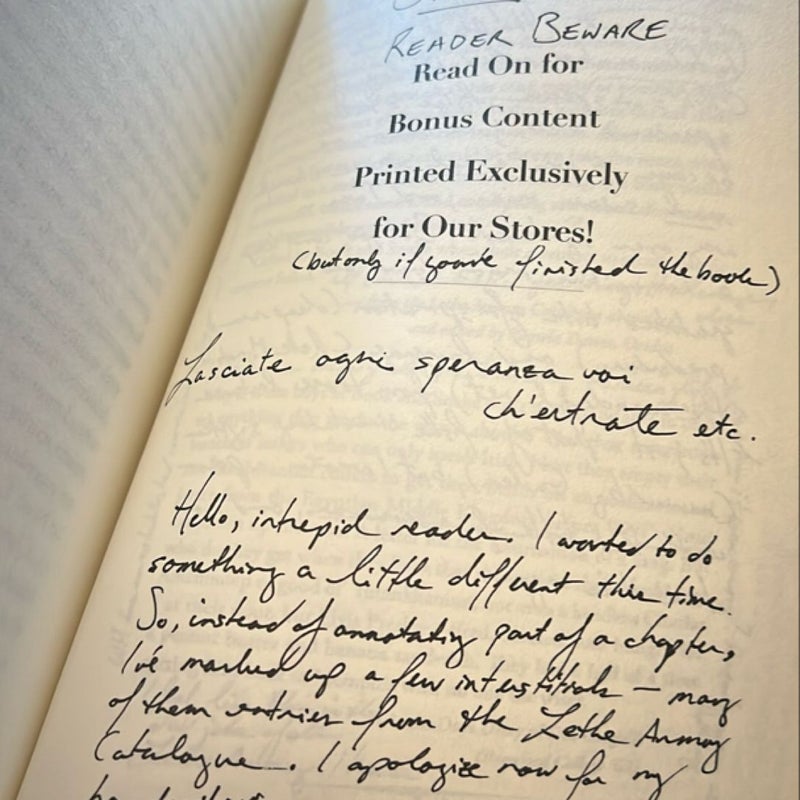 READER BEWARE
Read On for
Bonus Content
Printed Exclusively
for Our Stores!
(but only if you've finished the book)
Lasciate ogni speranza voi
ch'entrate etc.
Hello, intrepid reader. I wanted to do
something a little different this time.
So, instead of annotating part of a chapter,
I've marked up a few interstitials — many
of them entries from the Lethe Armory
Catalogue. I apologize now for my